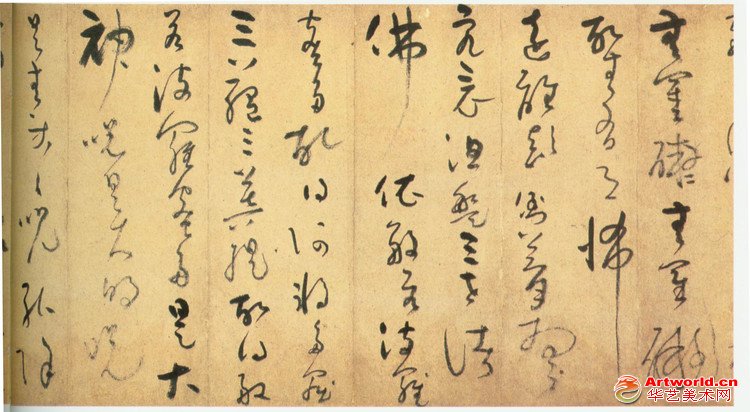 無罣礙無罣礙
故無有恐怖
遠離顛倒夢想
究竟涅槃三世諸
佛 依般若波羅
蜜多故得阿耨多羅
三藐三菩提故知般
若波羅蜜多是大
神咒是大明咒
是無等々咒能除
Artworld.cn
华艺美术网